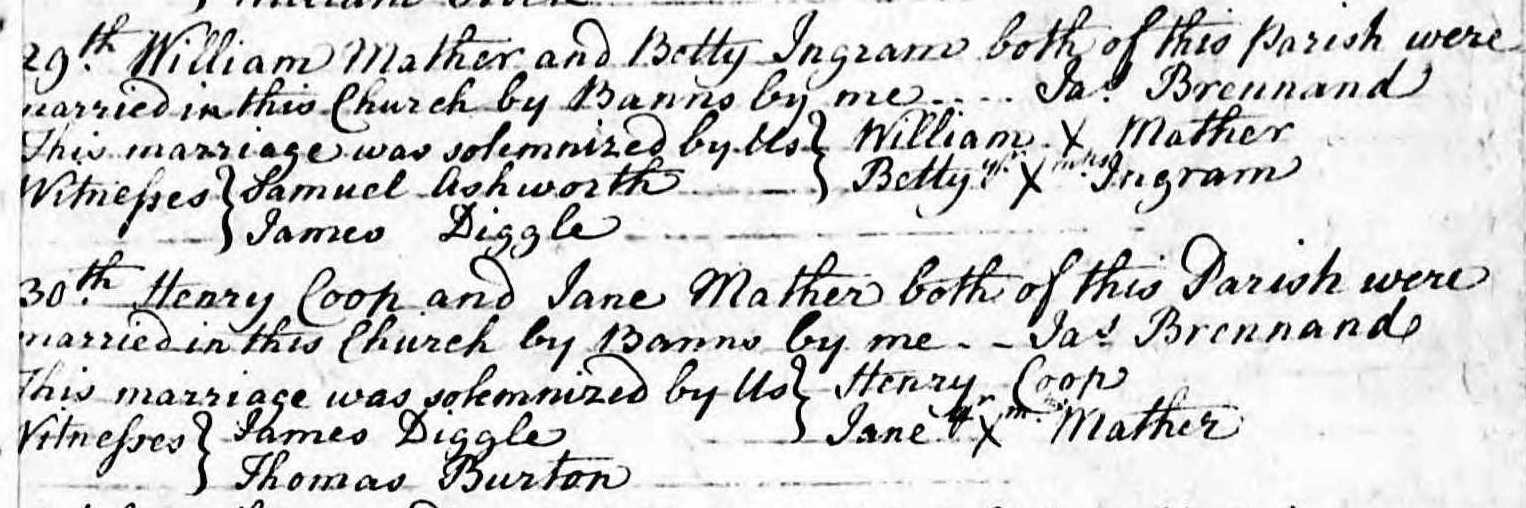 29th. William Mather and Betty Ingram both of this Parish were
married in this Church by Banns by me .... Jas. Brennand
This marriage was solemnized by Us } William X Mather
Witnesses } Samuel Ashworth } Betty X Ingram
James Diggle
30th. Henry Coop and Jane Mather both of this Parish were
married in this Church by Banns by me - - Jas. Brennand
This marriage was solemnized by Us } Henry Coop
Witnesses } James Diggle } Jane X Mather
Thomas Burton